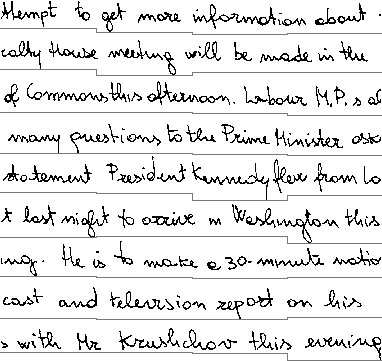 ttempt to get more information about
calty House meeting will be made in the
of Commons this afternoon. Labour M.P.s al
many questions to the Prime Minister ask
statement President Kennedy flew from Lo
t last night to arrive in Washington this
ing. He is to make a 30-minute natio
cast and television report on his
s with Mr Krushchov this evening